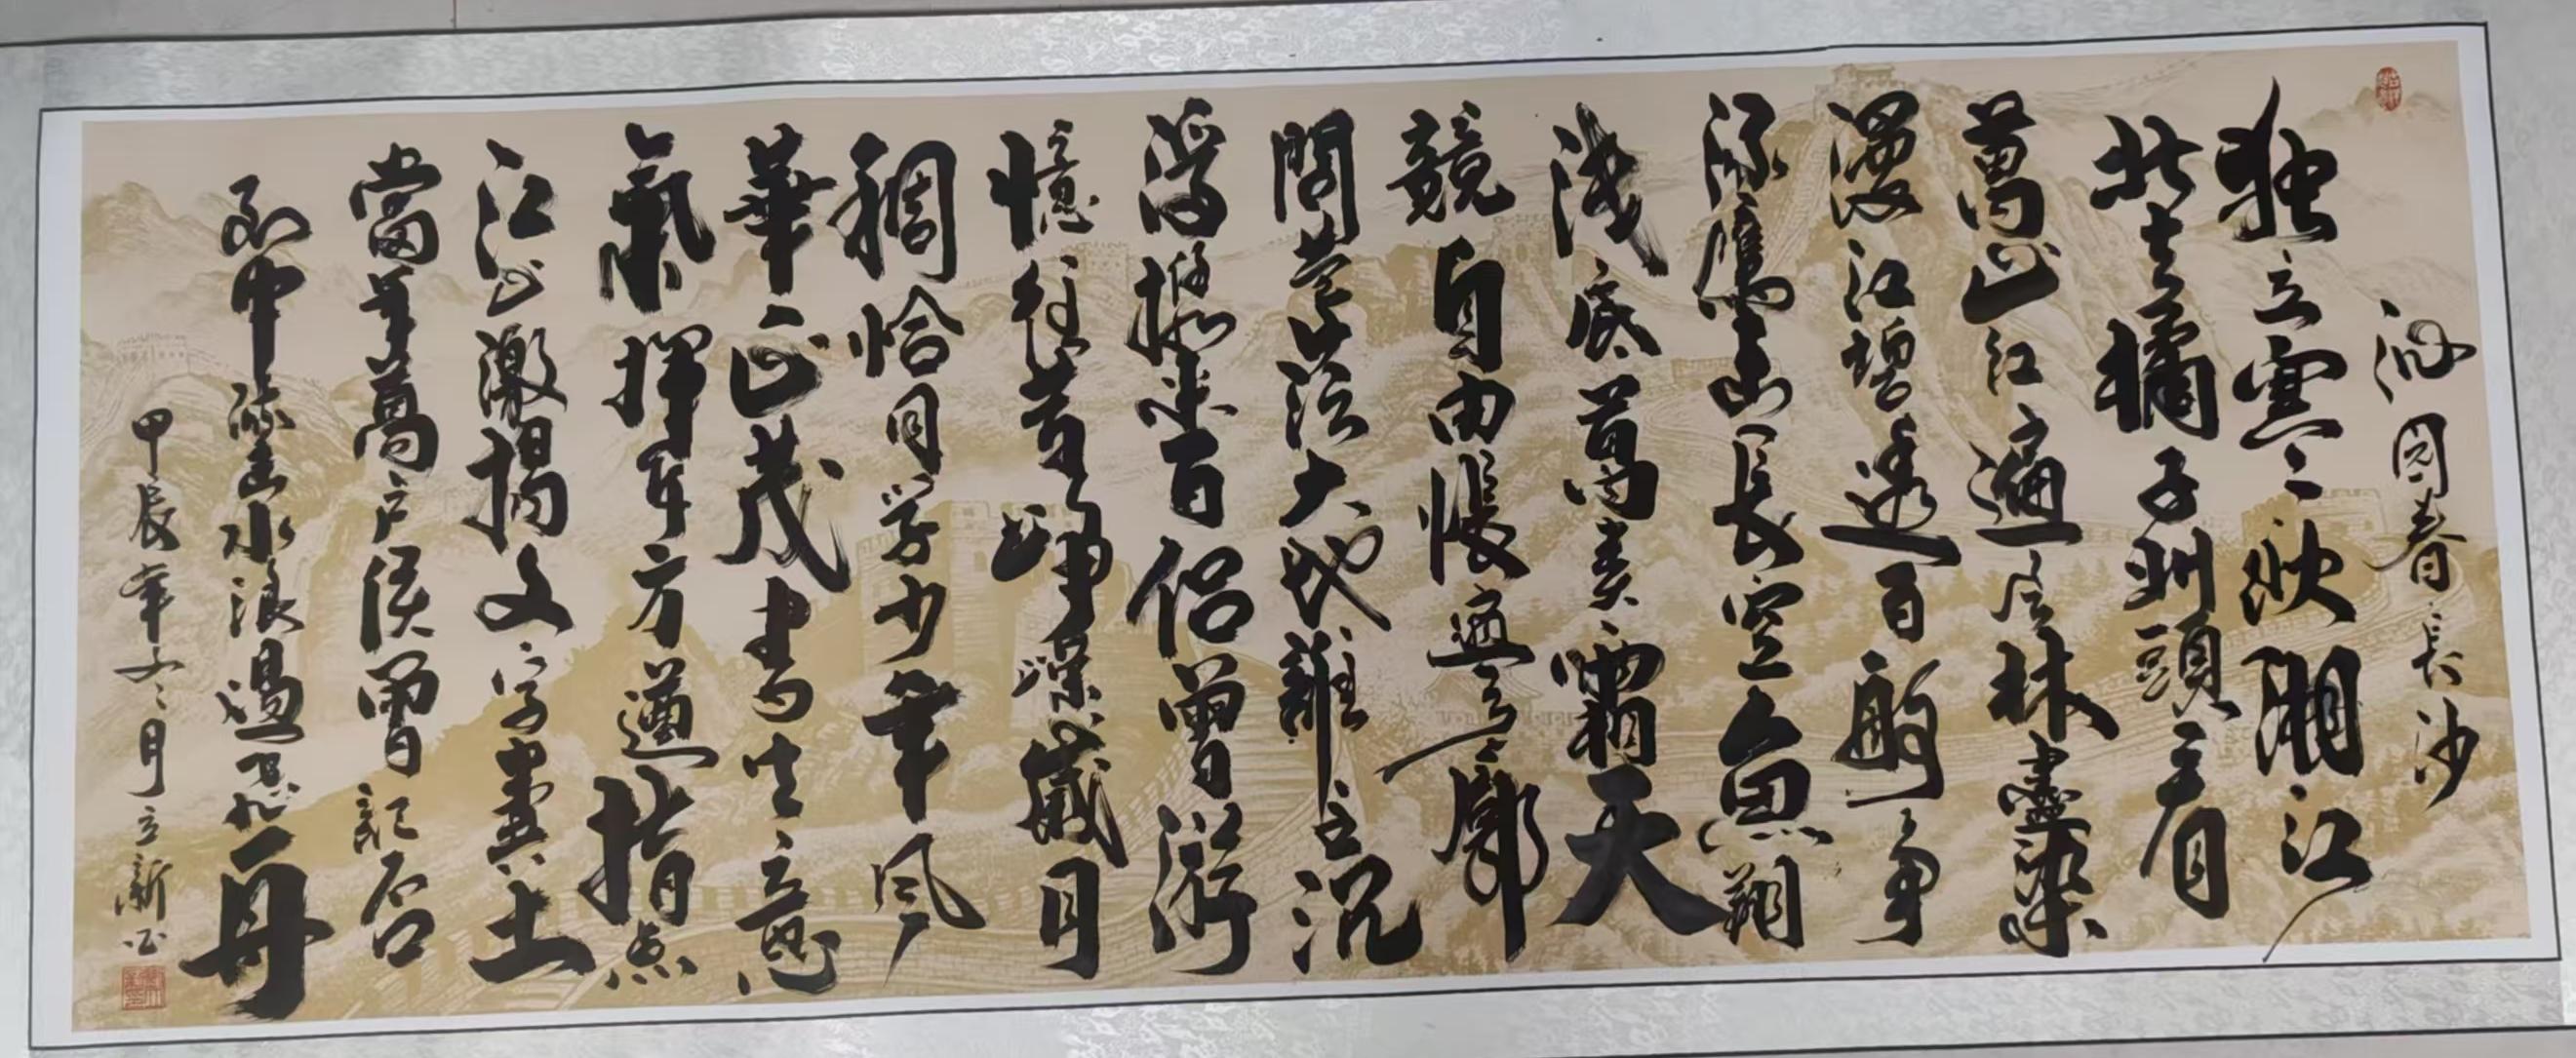 沁园春長沙
独立寒秋湘江
北去橘子洲頭看
萬山红遍层林盡染
漫江碧透百舸争
流鷹击長空魚翔
浅底萬类霜天
競自由悵寥廓
問苍茫大地誰主沉
浮攜来百侣曾游
憶往昔峥嵘歲月
稠恰同学少年風
華正茂书生意
氣揮斥方遒指点
江山激揚文字糞土
當年萬户侯曾記否
到中流击水浪遏飛舟
甲辰年冬月立新书